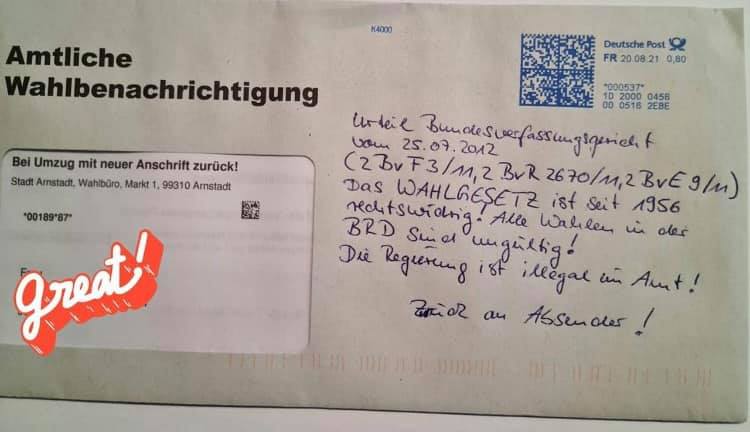 K4000
Deutsche Post
FR 20.08.21 0,80
*000537*
1D 2000 0458
00 0516 2EBE
Amtliche
Wahlbenachrichtigung
Bei Umzug mit neuer Anschrift zurück!
Stadt Arnstadt, Wahlbüro, Markt 1, 99310 Arnstadt
*00189*87*
great!
Urteil Bundesverfassungsgericht
vom 25.07.2012
(2 BvF 3/11, 2 BvR 2670/11, 2 BvE 9/11)
Das WAHLGESETZ ist seit 1956
rechtswidrig! Alle Wahlen in der
BRD sind ungültig!
Die Regierung ist illegal im Amt!
Zurück an Absender!